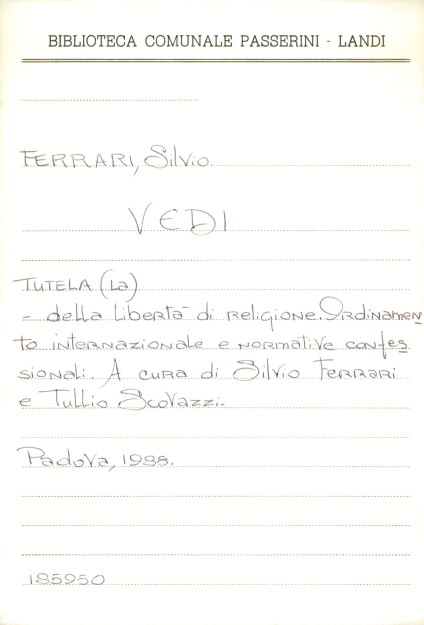 BIBLIOTECA COMUNALE PASSERINI - LANDI
FERRARI, Silvio
VEDI
TUTELA (La)
- della libertà di religione. Ordinamen
to internazionale e normative confes
sionali. A cura di Silvio Ferrari
e Tullio Scovazzi.
Padova, 1988.
185950